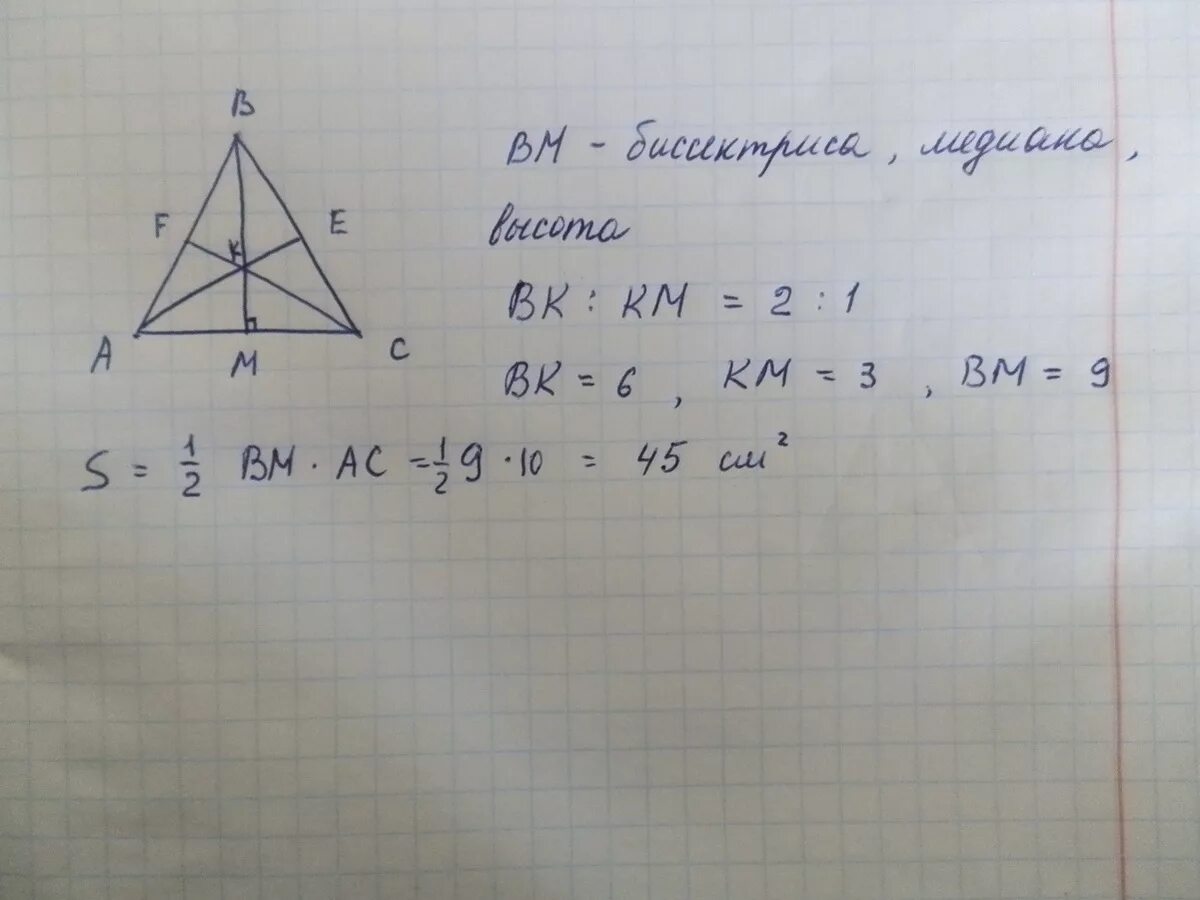 B
F E
K
A M C
BM - биссектриса, медиана,
высота
BK : KM = 2 : 1
BK = 6, KM = 3, BM = 9
S = 1/2 BM · AC = 1/2 9 · 10 = 45 см²